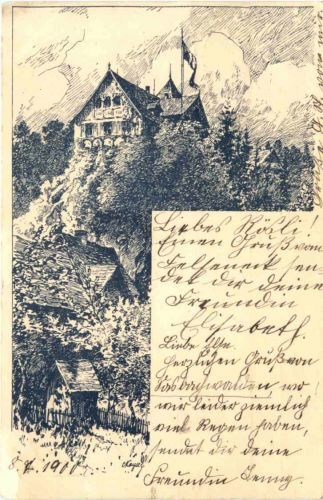 Liebes Rösli!
Einen Gruß vom
Felseneck sen
det dir deine
Freundin
Elisabeth.
Liebe
herzlichen Gruß von
Sasbachwalden wo
wir leider ziemlich
viel Regen haben,
sendet dir deine
Freundin Jenny.
8. 7. 1900